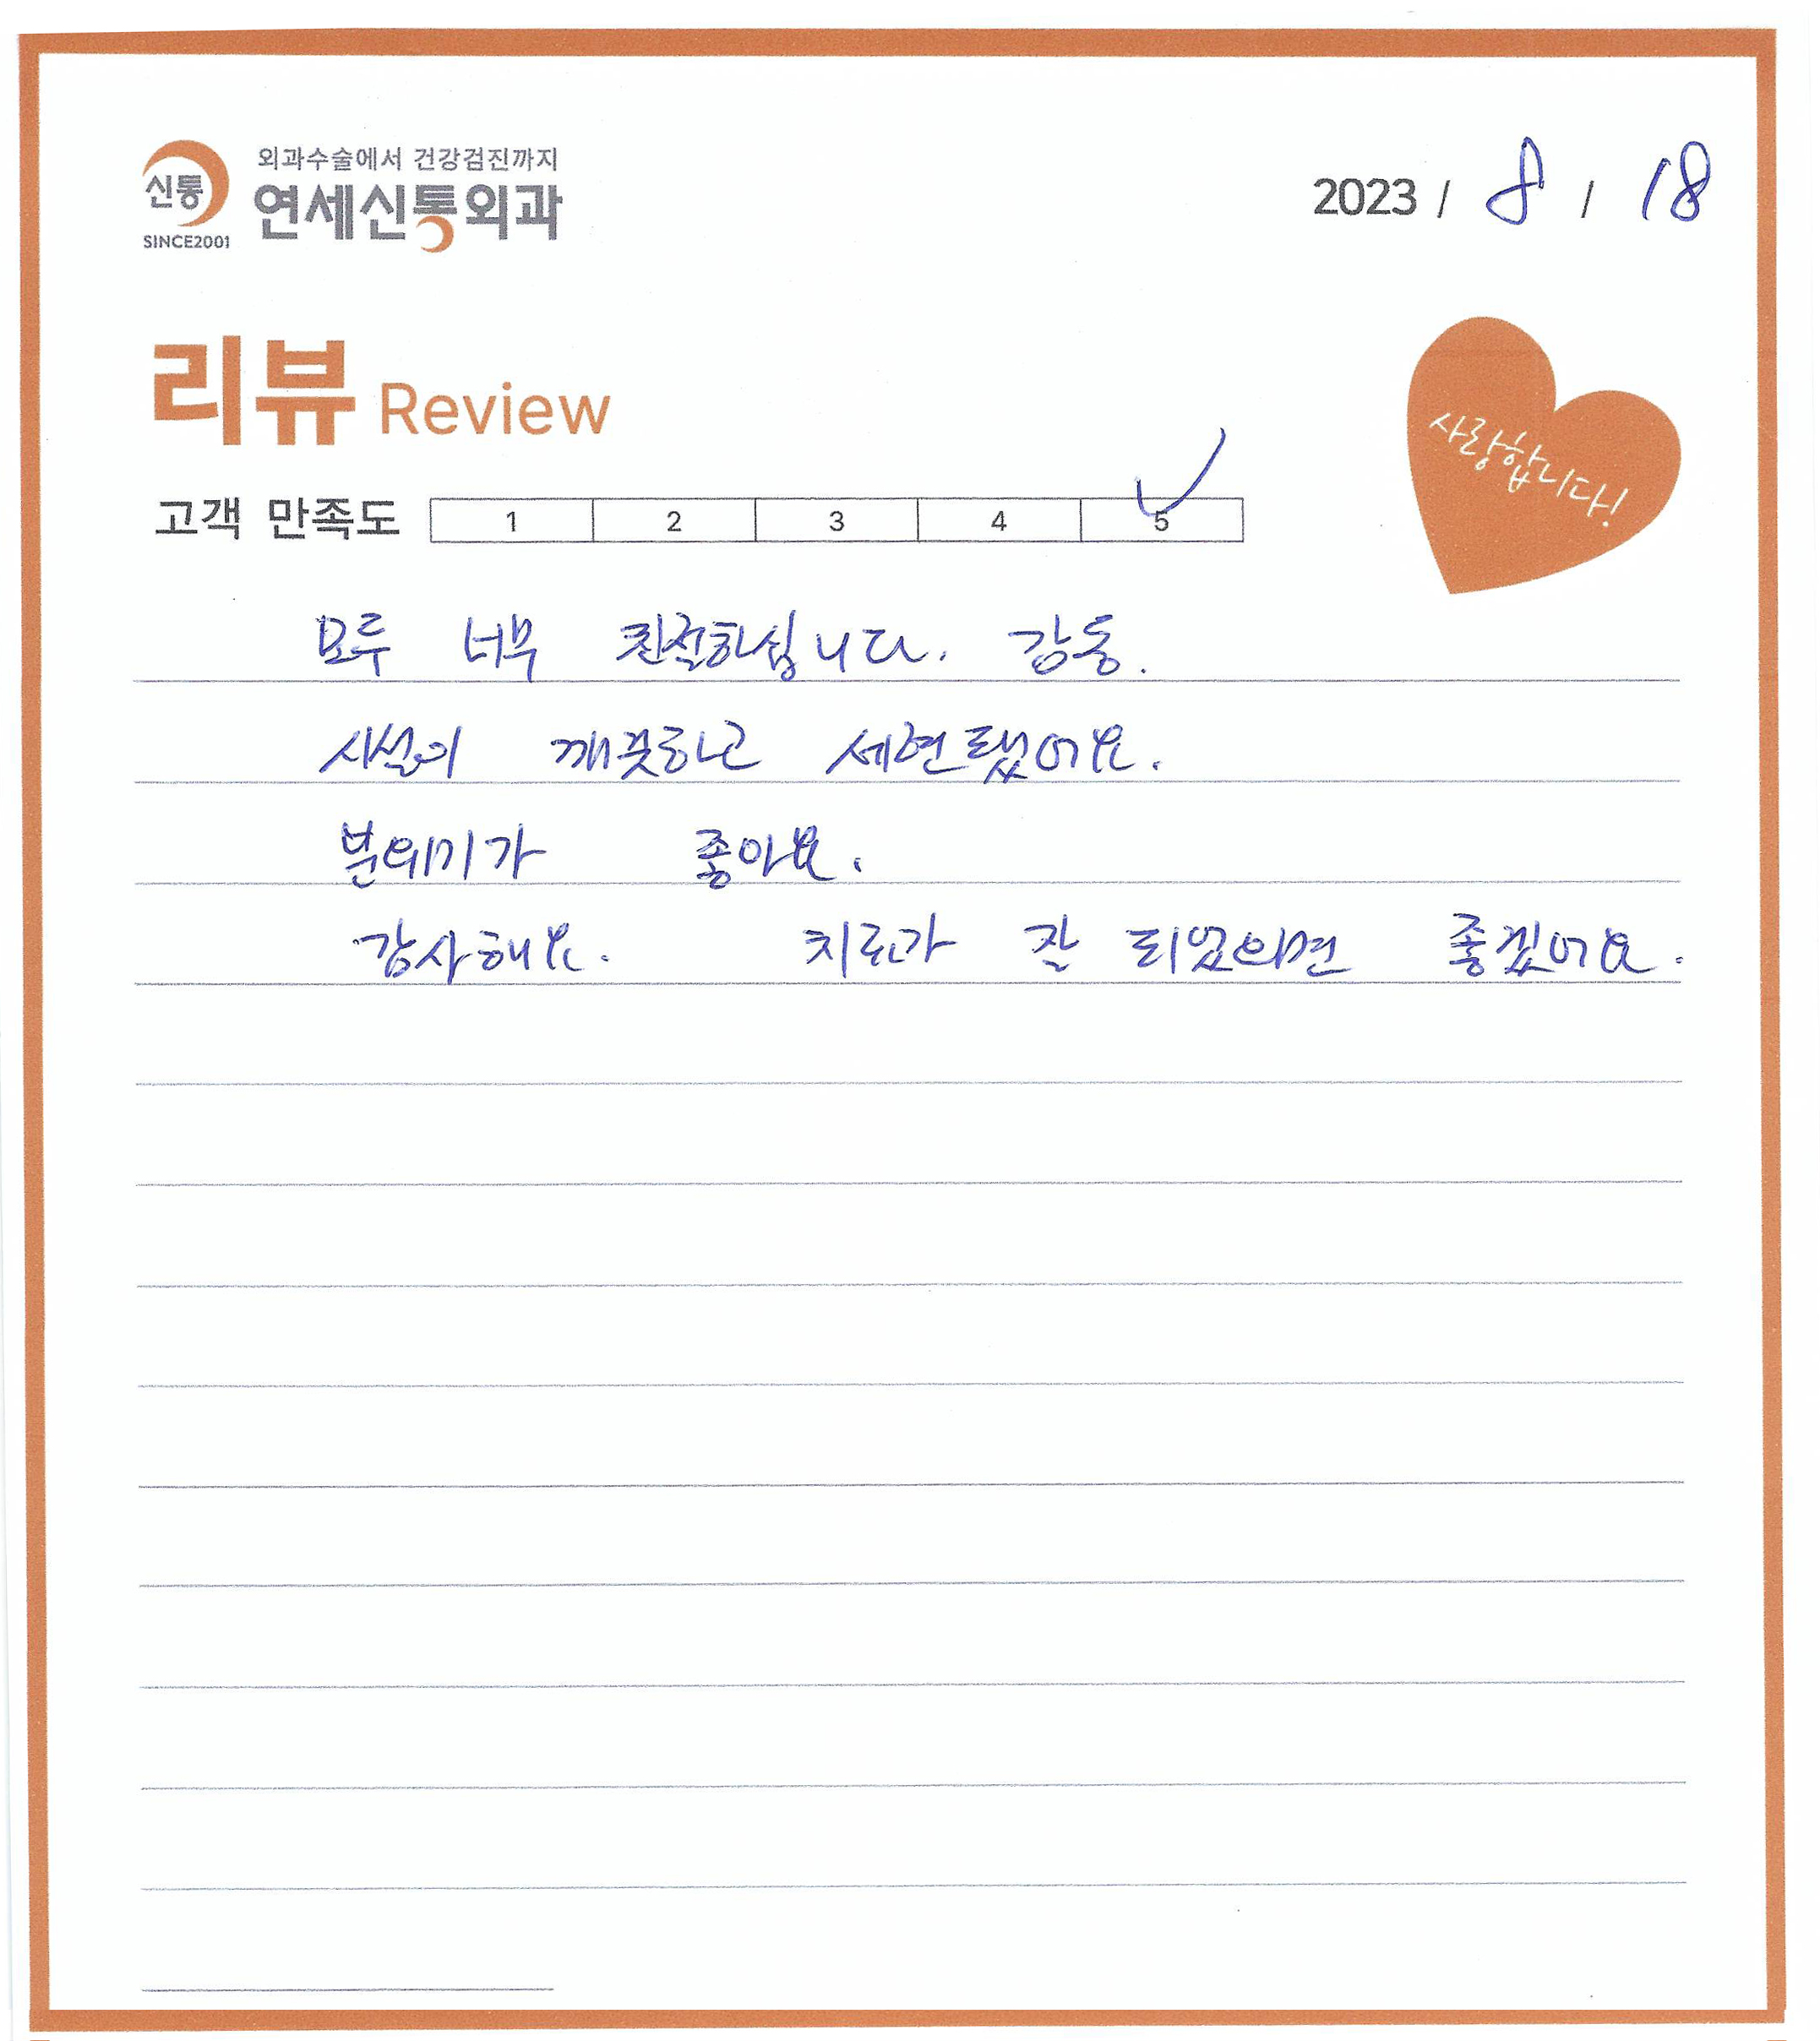 외과수술에서 건강검진까지
신통 연세신통외과
SINCE2001
2023 / 8 / 18
리뷰 Review
사랑합니다!
고객 만족도 1 2 3 4 5
모두 너무 친절하십니다. 감동.
시설이 깨끗하고 세련됐어요.
분위기가 좋아요.
감사해요. 치료가 잘 되었으면 좋겠어요.